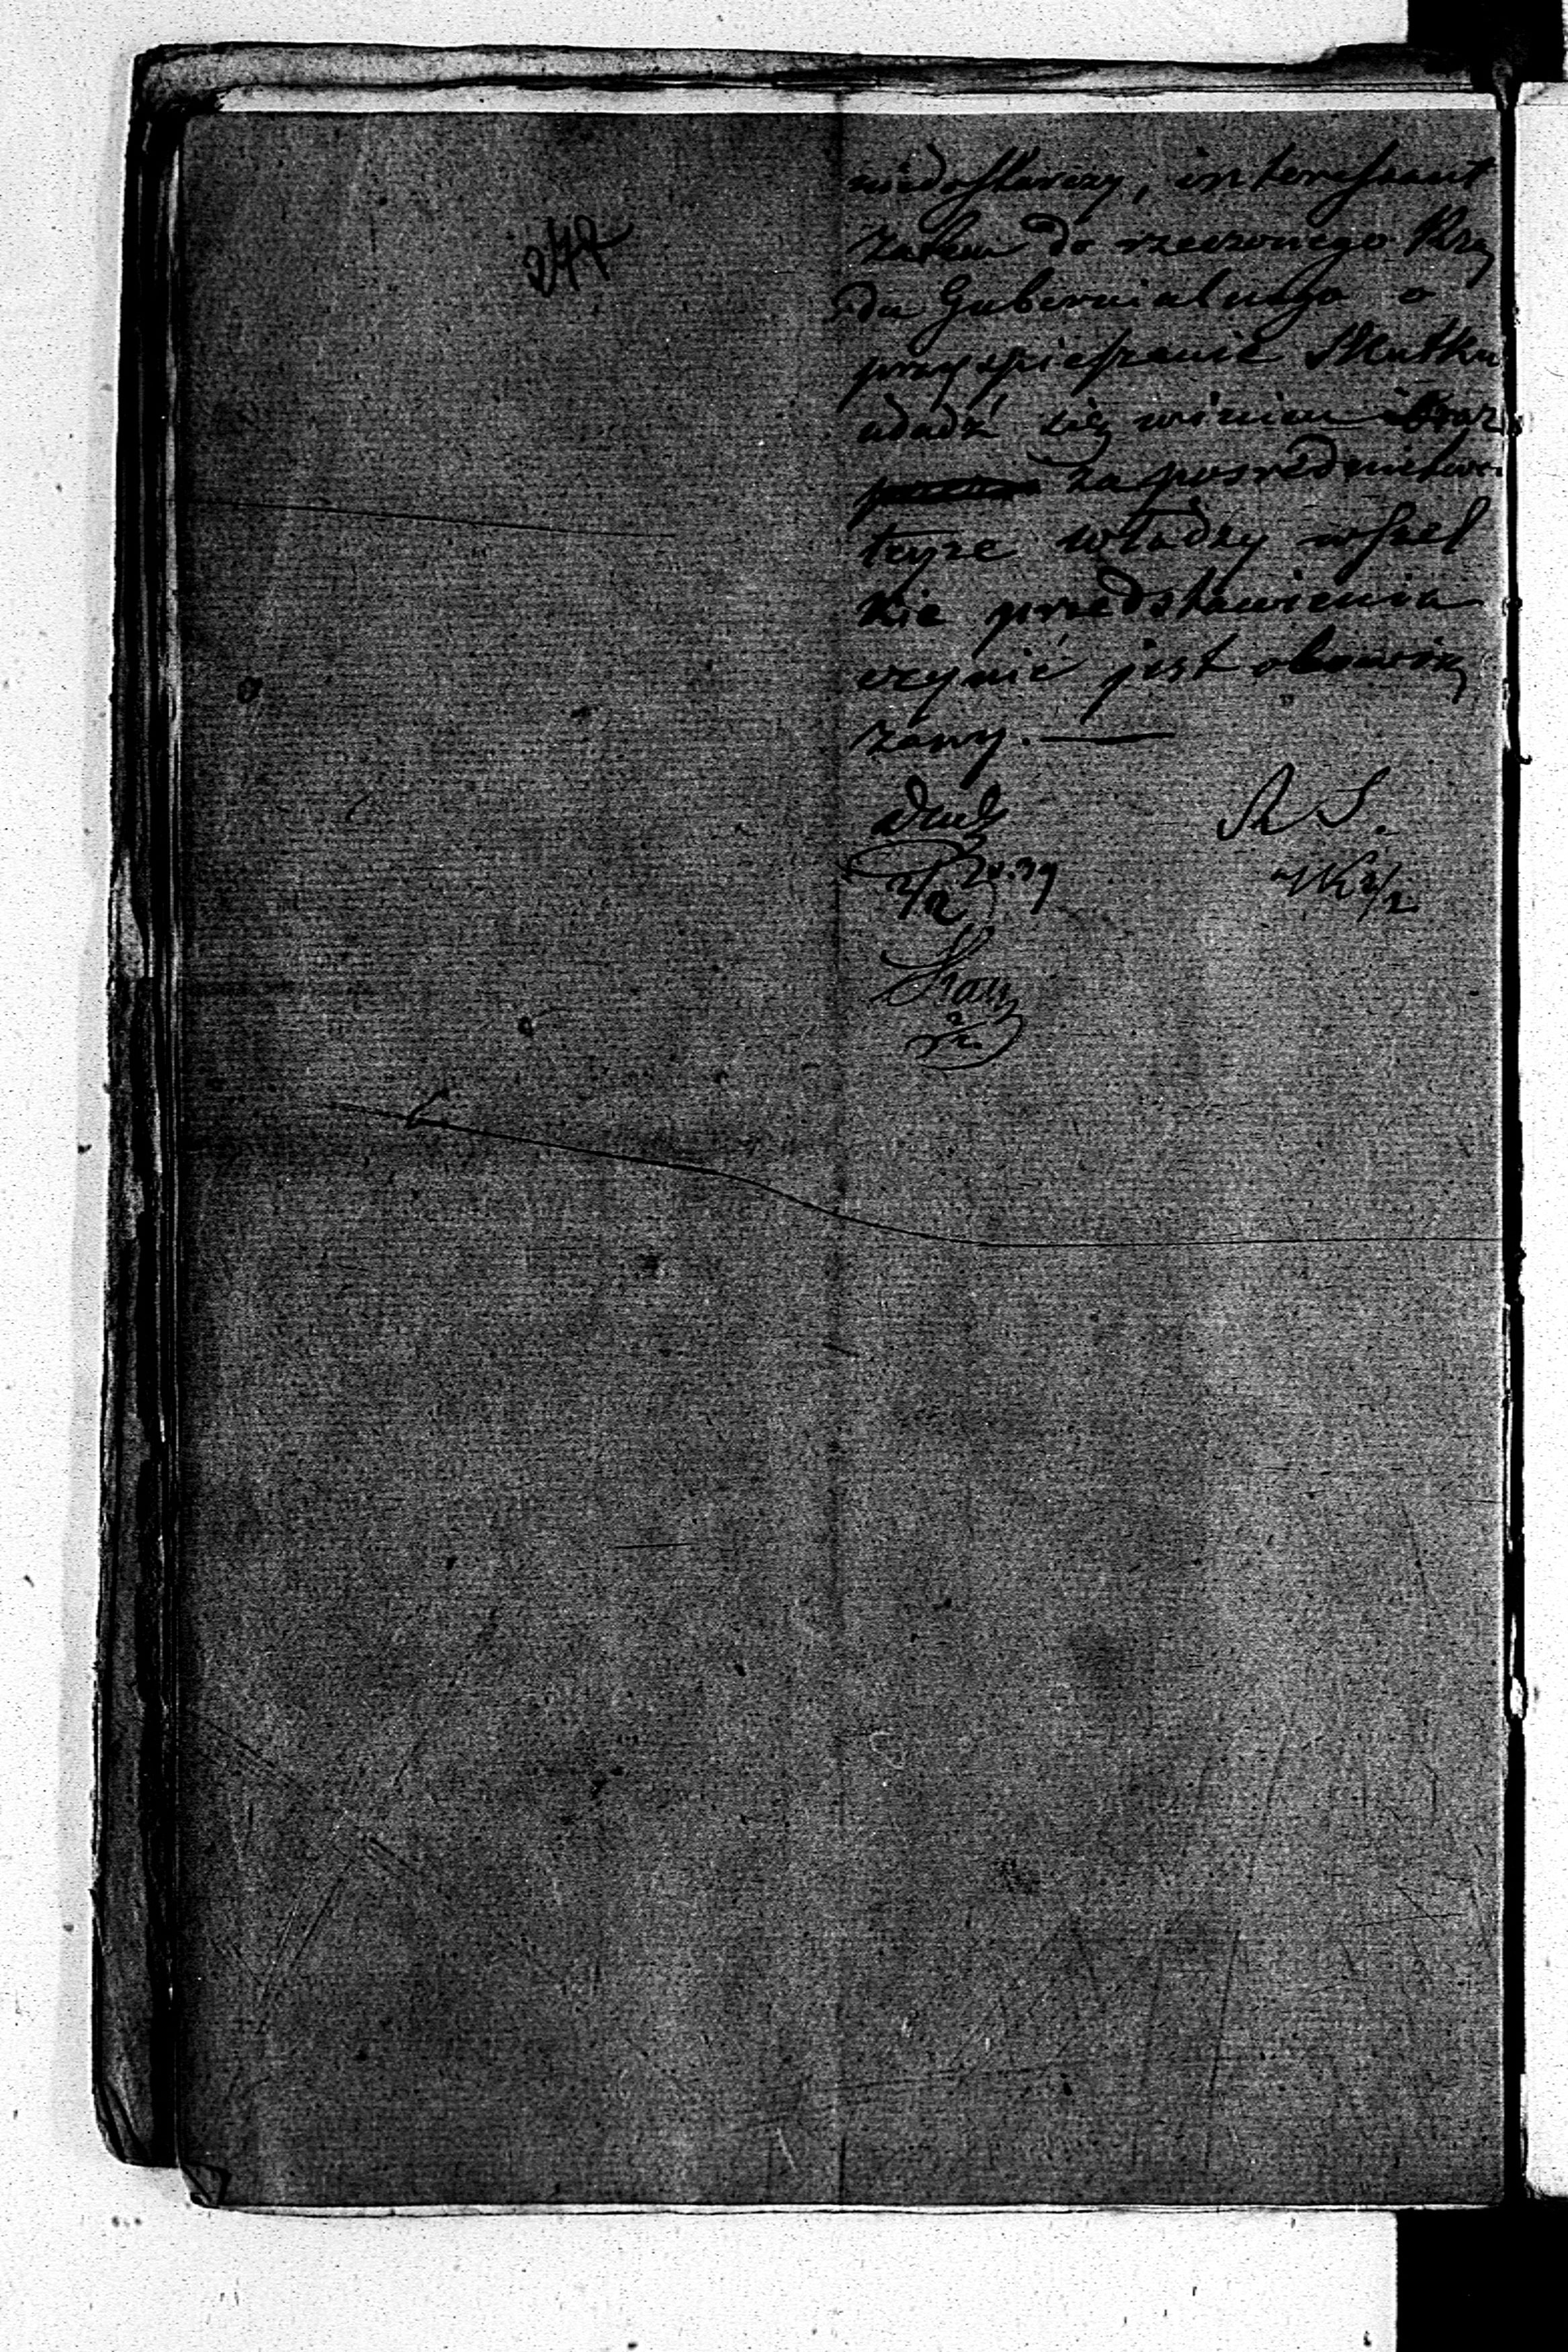 niedostarczy, interessant
zatem do rzeczonego Rzą
du Gubernialnego o
przyspieszenie skutku
udadź się winien i oraz
za pośrednictwem
teyże władzy wszel
kie przedstawienia
czynić jest obowią
zany. —
R S.
2/2
2/2